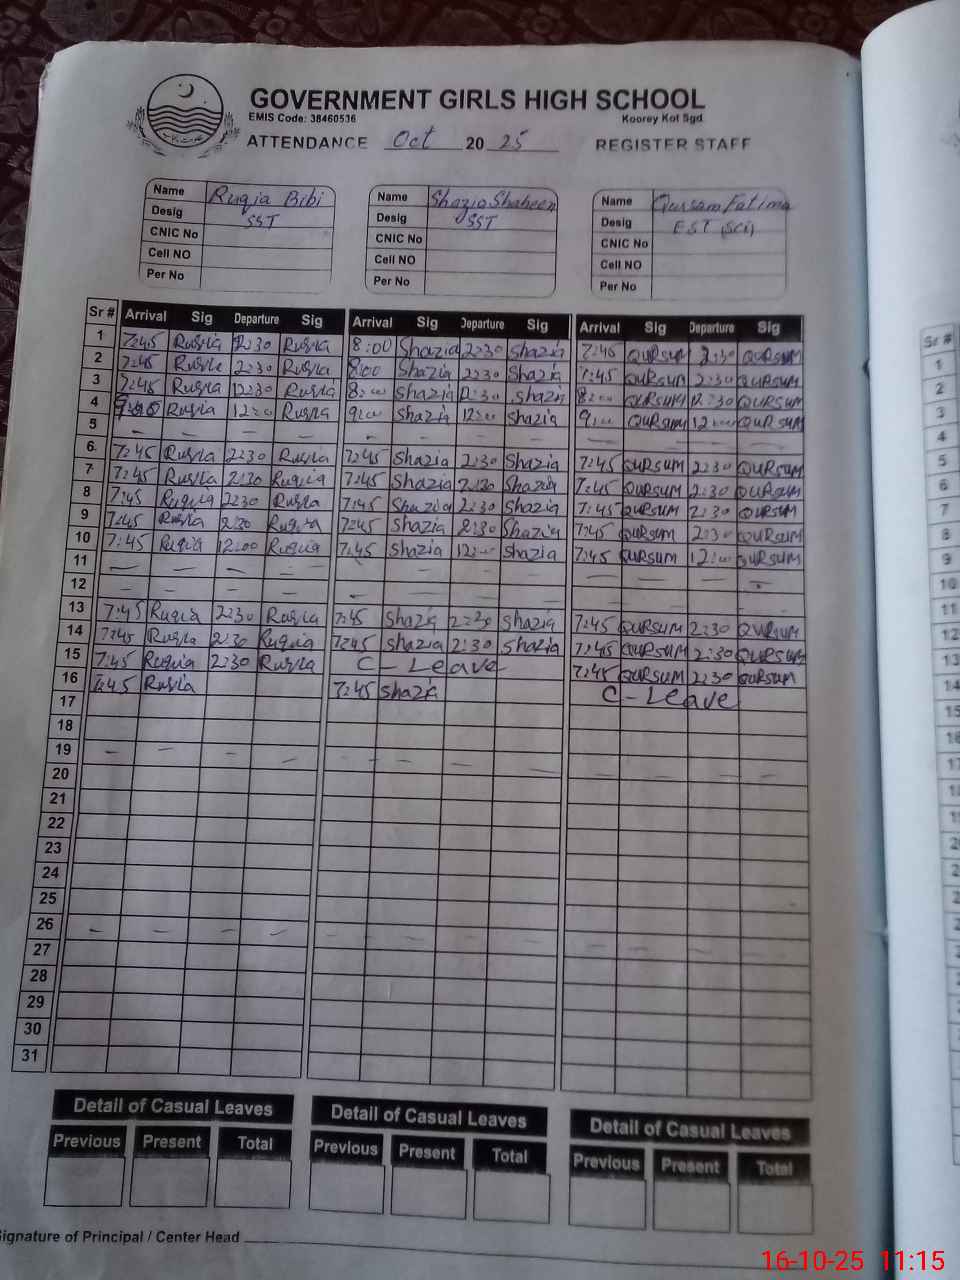 GOVERNMENT GIRLS HIGH SCHOOL
EMIS Code: 38460536 Koorey Kot Sgd
ATTENDANCE Oct 20 25 REGISTER STAFF
Name Ruqia Bibi Name Shazia Shaheen Name Qursam Fatima
Desig SST Desig SST Desig EST (Sci)
CNIC No CNIC No CNIC No
Cell NO Cell NO Cell NO
Per No Per No Per No
Sr # Arrival Sig Departure Sig Arrival Sig Departure Sig Arrival Sig Departure Sig
1 7:45 Ruqia 2:30 Ruqia 8:00 Shazia 2:30 Shazia 7:45 QURSUM 2:30 QURSUM
2 7:45 Ruqia 2:30 Ruqia 8:00 Shazia 2:30 Shazia 7:45 QURSUM 2:30 QURSUM
3 7:45 Ruqia 12:30 Ruqia 8:00 Shazia 12:30 Shazia 8:00 QURSUM 12:30 QURSUM
4 Ruqia 12:00 Ruqia 9:00 Shazia 12:00 Shazia 9:00 QURSUM 12:00 QURSUM
5 – – – – – – – – – – – –
6 7:45 Ruqia 2:30 Ruqia 7:45 Shazia 2:30 Shazia 7:45 QURSUM 2:30 QURSUM
7 7:45 Ruqia 2:30 Ruqia 7:45 Shazia 2:30 Shazia 7:45 QURSUM 2:30 QURSUM
8 7:45 Ruqia 2:30 Ruqia 7:45 Shazia 2:30 Shazia 7:45 QURSUM 2:30 QURSUM
9 7:45 Ruqia 2:30 Ruqia 7:45 Shazia 2:30 Shazia 7:45 QURSUM 2:30 QURSUM
10 7:45 Ruqia 12:00 Ruqia 7:45 Shazia 12:00 Shazia 7:45 QURSUM 12:00 QURSUM
11 – – – – – – – – – – – –
12 – – – – – – – – – – – –
13 7:45 Ruqia 2:30 Ruqia 7:45 Shazia 2:30 Shazia 7:45 QURSUM 2:30 QURSUM
14 7:45 Ruqia 2:30 Ruqia 7:45 Shazia 2:30 Shazia 7:45 QURSUM 2:30 QURSUM
15 7:45 Ruqia 2:30 Ruqia C – Leave 7:45 QURSUM 2:30 QURSUM
16 7:45 Ruqia 7:45 Shazia C – Leave
17
18
19 – – – – – – – – – – – –
20
21
22
23
24
25
26 – – – – – – – – – – – –
27
28
29
30
31
Detail of Casual Leaves Detail of Casual Leaves Detail of Casual Leaves
Previous Present Total Previous Present Total Previous Present Total
Signature of Principal / Center Head
Sr #
1
2
3
4
5
6
7
8
9
10
11
12
13
14
15
16
17
16-10-25 11:15